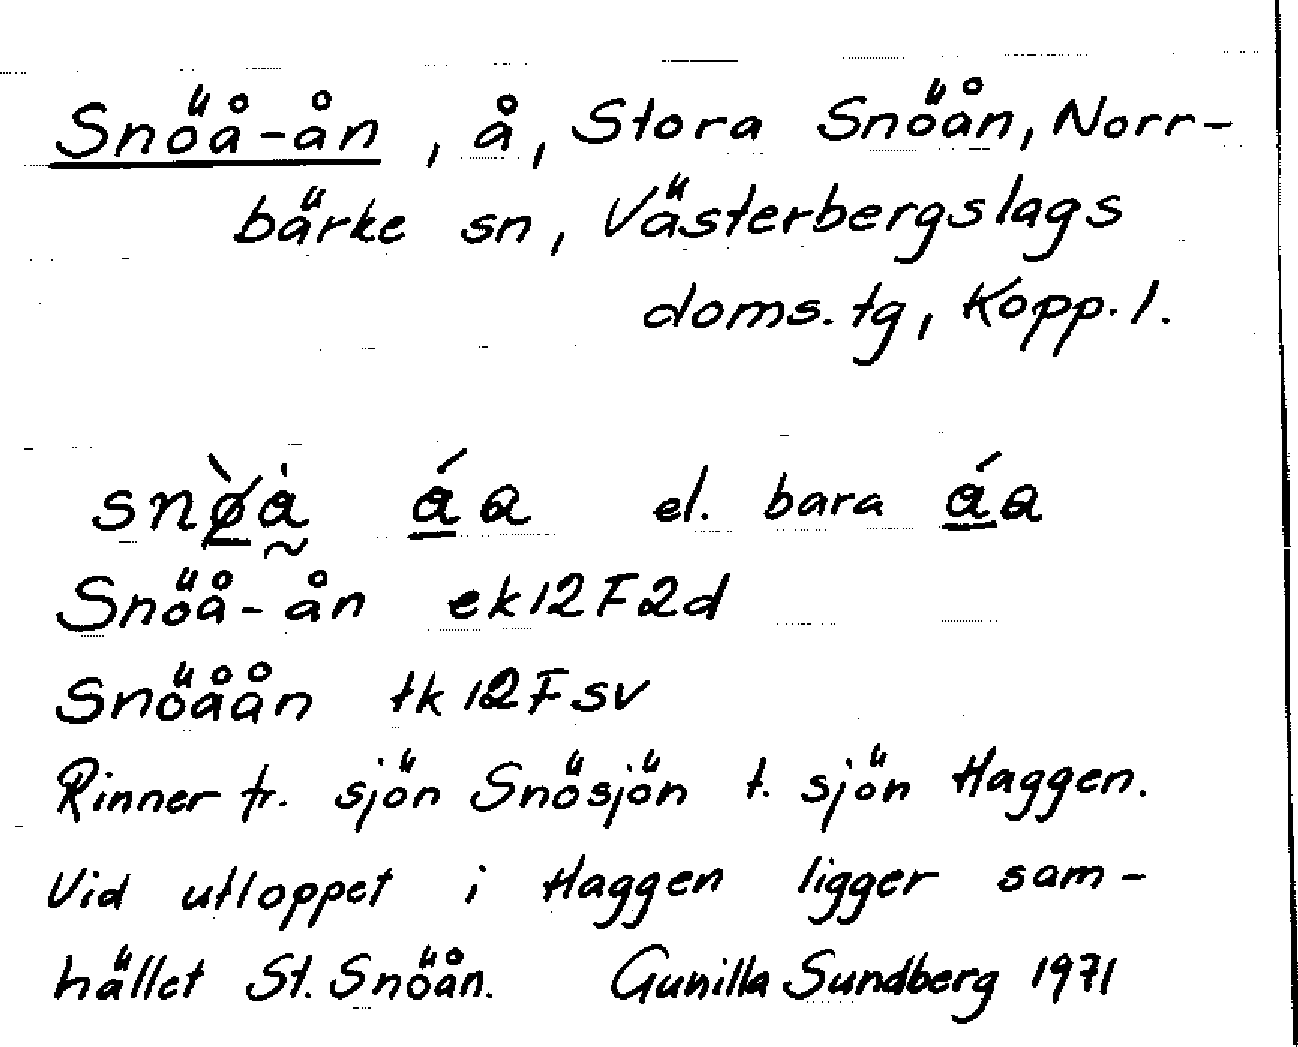 Snöå-ån, å, Stora Snöån, Norr-
bärke sn, Västerbergslags
doms. tg, Kopp. l.
el. bara
Snöå-ån ek12F2d
Snöåån tk12Fsv
Rinner fr. sjön Snösjön t. sjön Haggen.
Vid utloppet i Haggen ligger sam-
hället St. Snöån. Gunilla Sundberg 1971